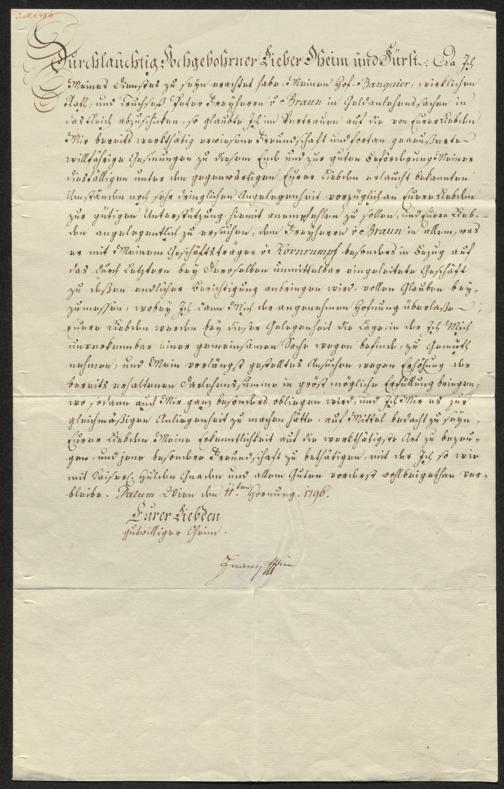 Durchläuchtig Hochgebohrner Lieber Oheim und Fürst. Da Ich
Meines Dienstes zu seyn erachtet habe, Meinen Hof-Banquier, wirklichen
Rath, und Peter Freyherrn v Braun in Geldanlehenssachen in
das Reich abzuschicken, so glaubte Ich im Vertrauen auf die von Euer Liebden
Mir bereits werkthätig erwiesene Freundschaft und fortan
willfährige Gesinnungen zu diesem Ende und zur guten Beförderung Meiner
diesfälligen unter den gegenwärtigen Eurer Liebden bekannten
Umständen noch sehr dringlichen Angelegenheit vorzüglich an Euer Liebden
zur gütigen Unterstützung hiemit anempfehlen zu sollen, und Euer Lieb-
den angelegentlich zu ersuchen, dem Freyherrn v Braun in allem, was
er mit Meinem Geschäftsträger v Kornrumpf besonders in Bezug auf
das durch Letztern bey Denenselben unmittelbar eingeleitete Geschäft
zu dessen endlicher Berichtigung anbringen wird, vollen Glauben bey-
zumessen, wobey Ich dann Mich der angenehmen Hofnung überlasse,
Euere Liebden werden bey dieser Gelegenheit die Lage, in der Ich Mich
unverkennbar einer gemeinsamen Sache wegen befinde, zu Gemüth
nehmen, und Mein vorlängst gestelltes Ansuchen wegen Erhöhung der
bereits erhaltenen Darlehenssumme in größt mögliche Erfüllung bringen,
wo sodann auch Mir ganz besonders obliegen wird, und Ich Mir es zur
gleichmäßigen Angelegenheit zu machen hätte, auf Mittel bedacht zu seyn,
Euerer Liebden Meine Erkenntlichkeit auf die werkthätigste Art zu bezeu-
gen, und jene besondere Freundschaft zu bethätigen, mit der Ich so wie
mit Kaiserl. Hulden Gnaden und allem Guten vorderst wohlbeigethan ver-
bleibe. Datum Wien den 11ten Hornung 1796.
Eurer Liebden
gutwilliger Oheim.
Franz